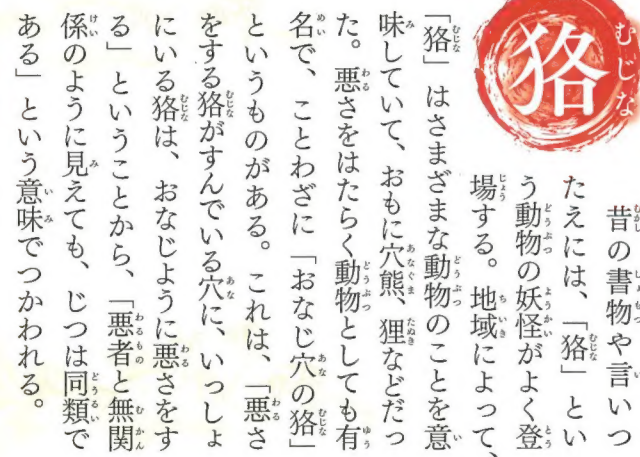 狢
むじな
昔の書物や言いつ
たえには、「狢」とい
う動物の妖怪がよく登
場する。地域によって、
「狢」はさまざまな動物のことを意
味していて、おもに穴熊、狸などだっ
た。悪さをはたらく動物としても有
名で、ことわざに「おなじ穴の狢」
というものがある。これは、「悪さ
をする狢がすんでいる穴に、いっしょ
にいる狢は、おなじように悪さをす
る」ということから、「悪者と無関
係のように見えても、じつは同類で
ある」という意味でつかわれる。